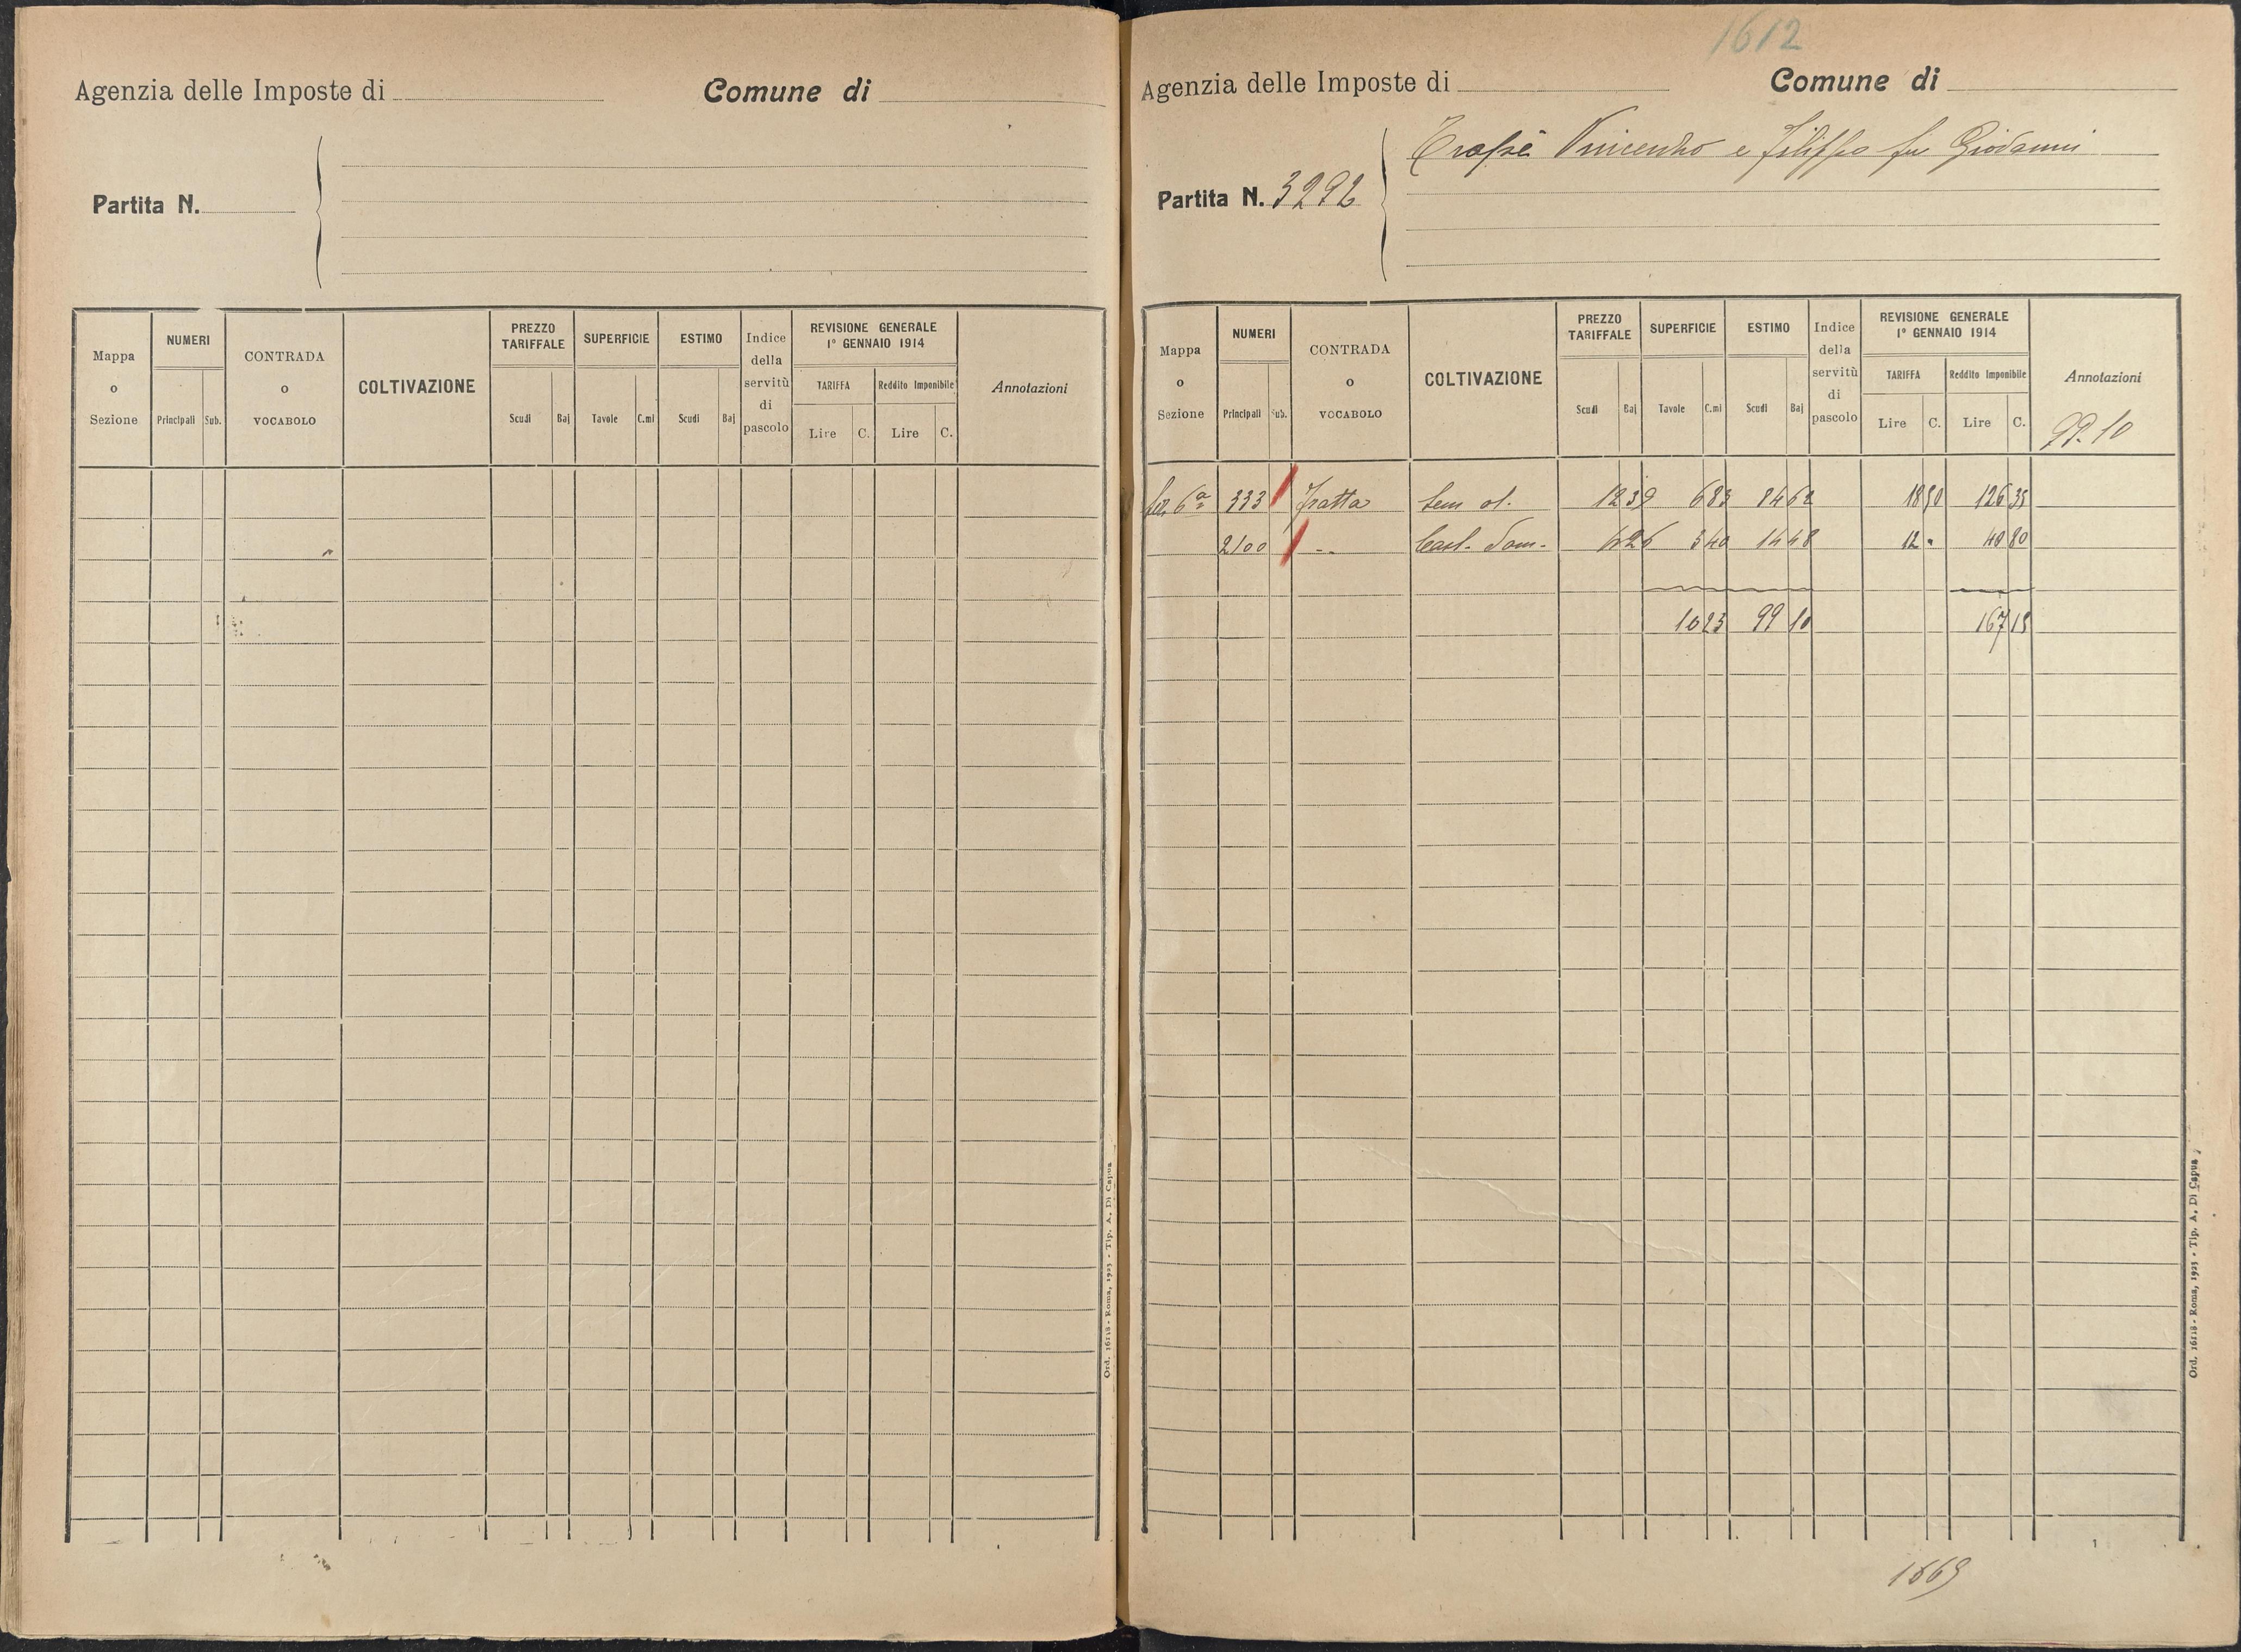 Agenzia delle Imposte di
Comune di
Partita N.
Mappa o Sezione
NUMERI
Principali
Sub.
CONTRADA o VOCABOLO
COLTIVAZIONE
PREZZO TARIFFALE
Scudi
Baj
SUPERFICIE
Tavole
C.mi
ESTIMO
Scudi
Baj
Indice della servitù di pascolo
REVISIONE GENERALE 1º GENNAIO 1914
TARIFFA
Reddito Imponibile
Lire
C.
Lire
C.
Annotazioni
Ord. 16118 - Roma, 1923 - Tip. A. Di Capua
1612
Agenzia delle Imposte di
Comune di
e Filippo fu Giovanni
Partita N. 3292
Mappa o Sezione
NUMERI
Principali
Sub.
CONTRADA o VOCABOLO
COLTIVAZIONE
PREZZO TARIFFALE
Scudi
Baj
SUPERFICIE
Tavole
C.mi
ESTIMO
Scudi
Baj
Indice della servitù di pascolo
REVISIONE GENERALE 1º GENNAIO 1914
TARIFFA
Reddito Imponibile
Lire
C.
Lire
C.
Annotazioni
99.10
6ª 333 Fratta Sem ol. 12 39 6 83 84 62 18 50 126 35
2100 Cast. dom. 4 26 3 40 14 48 12 40 80
10 23 99 10 167 15
Ord. 16118 - Roma, 1923 - Tip. A. Di Capua
1669